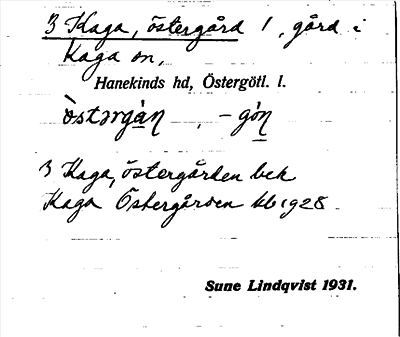 3 Kaga, östergård 1, gård i
Kaga sn,
Hanekinds hd, Östergötl. l.
östərgàn — , – gón
3 Kaga, östergården bek
Kaga Östergården kb 1928
Sune Lindqvist 1931.